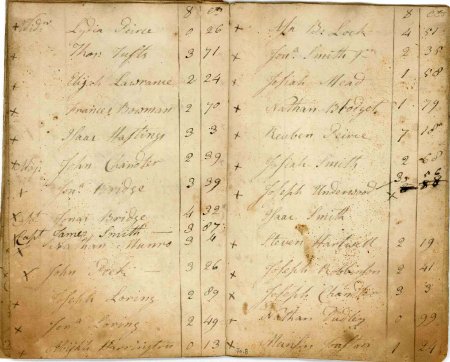 8 cts
Lydia Peirce 0 26
Thos Tufts 3 71
Elijah Lawrance 2 24
Francis Bowman 2 70
Isaac Hastings 3 3
John Chandler 2 39
Jona Bridge 3 39
Capt Jonas Bridge 4 32
Capt James Smith — 3 87
Nathan Munro 3 4
John Peck — 3 26
Joseph Loring 2 89
Jona Loring 2 49
Harrington 0 13
8 cts
Asa B. Lock 4 51
Jona Smith Jr 2 35
Josiah Mead 1 58
Nathan Blodget 1 79
Reuben Peirce 7 18
Josiah Smith 2 68
Joseph Underwood
Isaac Smith
Steven Hartwell 2 19
Joseph Robinson 2 41
Joseph Chandler 2 3
Nathan Dudley 0 99
1